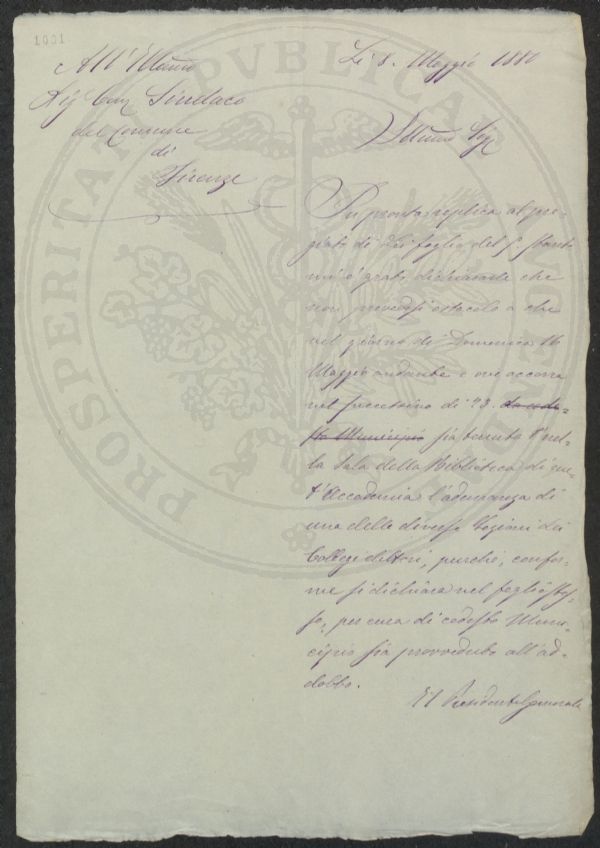 1001
All' Illmo
Sig Cav Sindaco
del Comune
di
Firenze
Li 8. Maggio 1880
Illmo Sig
In pronta replica al pre-
giato di Lei foglio del 5. stante
mi è grato dichiararle che
non havvi ostacolo a che
nel giorno di Domenica 16
Maggio andante e ove occorra
nel successivo di 23. da code-
sto Municipio sia tenuta nel-
la Sala della Biblioteca di que-
st'Accademia l'adunanza di
una delle diverse Sezioni dei
Collegi elettori, purchè, confor-
me si dichiara nel foglio stes-
so, per cura di codesto Muni-
cipio sia provveduto all'ad-
dobbo.
Il Presidente Generale
PROSPERITATI PVBLICAE